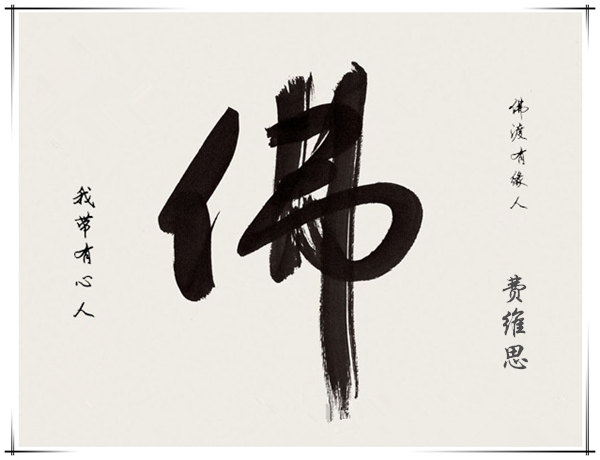 佛渡有缘人
费维思
佛
我带有心人